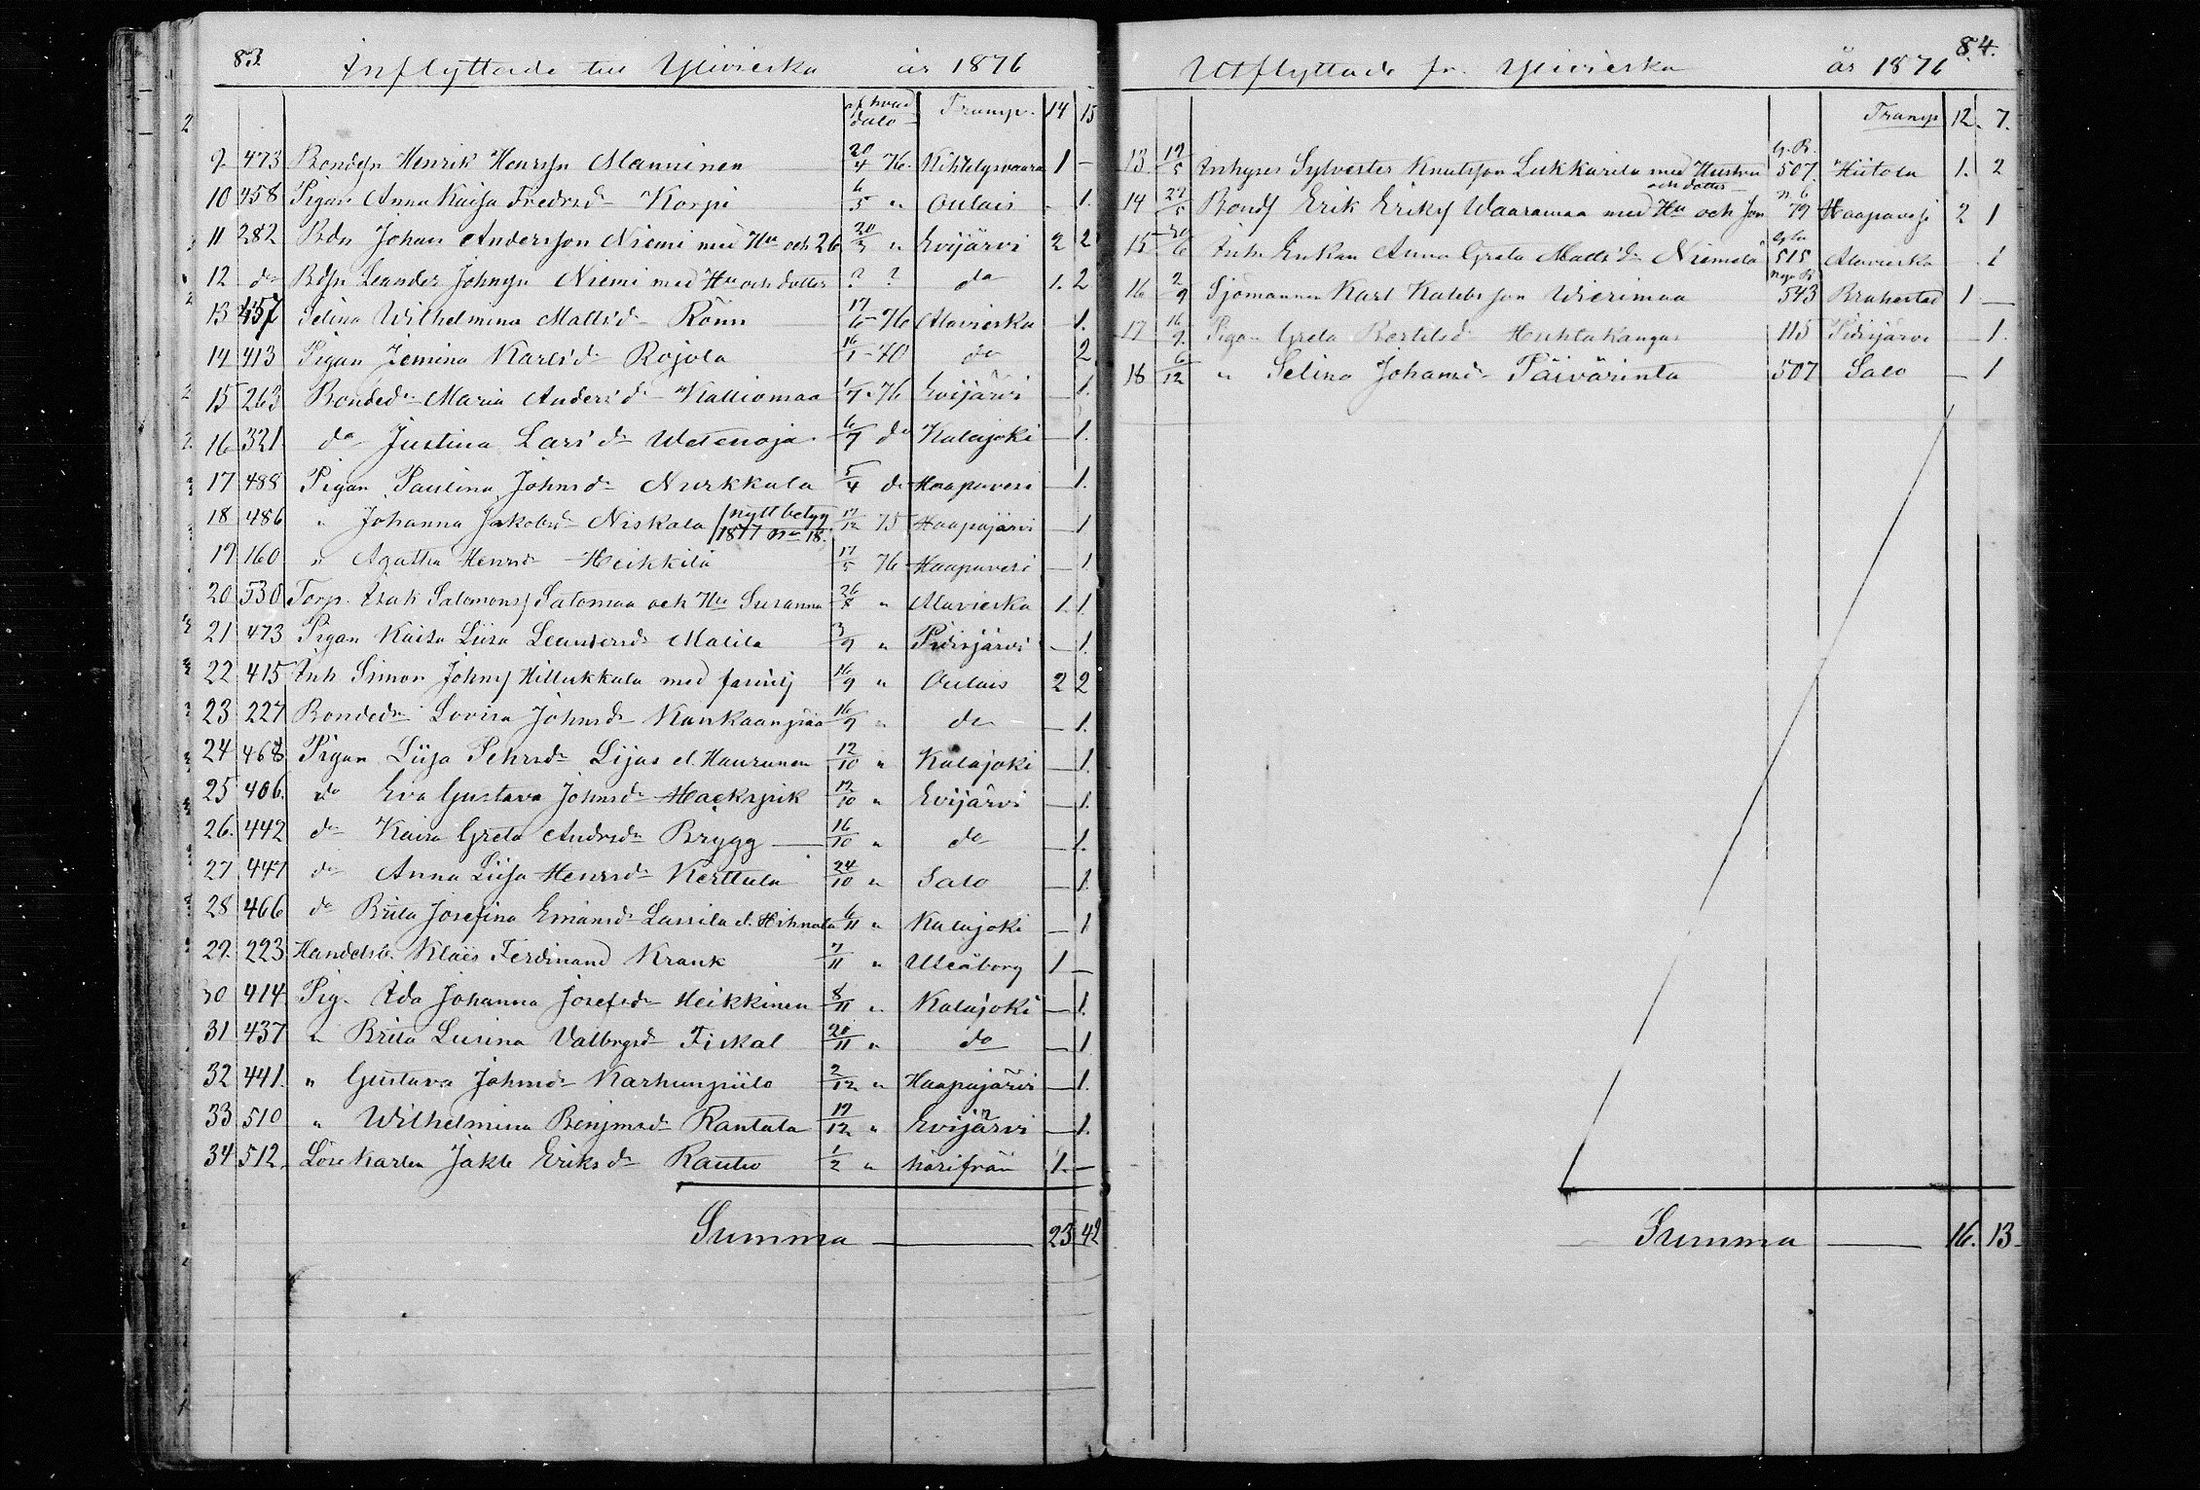 83. Inflyttade till Ylivieska år 1876
af hvad dato Transp. 14 15
9 473 Bondesn Henrik Henrssn Manninen 20/4 76 Kihtelysvaara 1 -
10 458 Pigan Anna Kaisa Fredrsdr Korpi 6/5 " Oulais - 1.
11 282 Bdn Johan Andersson Niemi med Hu och 2 b 20/3 " Evijärvi 2 2
12 do Bdsn Leander Johnsn Niemi med Hu och dotter ? ? do 1. 2
13 457 Selina Wilhelmina Mattsdr Rönn 17/6 - 76 Alavieska - 1.
14 413 Pigan Jemina Karlsdr Rojola 16/1 - 70 do 2
15 263 Bondedr Maria Andersdr Kalliomaa 1/7 - 76 Evijärvi - 1.
16 321. do Justina Larsdr Wetenoja 6/7 do Kalajoki - 1.
17 488 Pigan Paulina Johnsdr Nurkkala 5/4 do Haapavesi - 1.
18 486 " Johanna Jakobsdr Niskala (nytt betyg 1877 No 18. 17/12 75 Haapajärvi - 1
19 160 " Agatha Henrsdr Heikkilä 17/5 76 Haapavesi - 1
20 530 Torp. Isak Salomonss Salomaa och Hu Susanna 26/8 " Alavieska 1. 1.
21 473 Pigan Kaisa Liisa Leandersdr Matila 3/9 " Pidisjärvi - 1.
22 415 Inh Simon Johnss Hillukkala med familj 16/9 " Oulais 2 2
23 227 Bondedr Lovisa Johnsdr Kankaanpää 16/9 " do - 1.
24 468 Pigan Liisa Pehrsdr Lijas el. Haurunen 12/10 " Kalajoki - 1.
25 406. do Eva Gustava Johnsdr Hackspik 12/10 " Evijärvi - 1.
26. 442 do Kaisa Greta Andrsdr Brygg 16/10 " do - 1.
27 447 do Anna Liisa Henrsdr Kerttula 24/10 " Salo - 1.
28 466 do Brita Josefina Emansdr Lassila el. Hihnala 6/11 " Kalajoki - 1
29. 223 Handelsb. Klaes Ferdinand Krank 7/11 " Uleåborg 1 -
30 414 Pig. Ida Johanna Josefsdr Heikkinen 8/11 " Kalajoki - 1.
31 437 " Brita Lusina Valbrgsdr Fiskal 20/11 " do - 1
32 441. " Gustava Johnsdr Karhunpiilo 2/12 " Haapajärvi - 1.
33 510 " Wilhelmina Benjmsdr Rantala 19/12 " Evijärvi - 1.
34 512. Löskarlen Jakob Eriksdr Rautio 1/2 " härifrån 1. -
Summa 23 42
Utflyttade fr. Ylivieska år 1876 84.
Transp 12. 7.
13 19/5 Inhyses Sylvester Knutsson Lukkarila med Hustru och dotter G. B. 507. Hiitola 1. 2
14 22/5 Bonds Erik Erikss Waaramaa med Hu och son 79 Haapavesi 2 1
15 30/6 Inh. Enkan Anna Greta Mattsdr Niemelä 515 Alavieska 1
16 2/9 Sjömannen Karl Kalebsson Wierimaa nya B 543 Brahestad 1 -
17 16/9. Pigan Greta Bertilsdr Huhtakangas 115 Pidisjärvi - 1.
18 6/12 " Selina Johansdr Päivärinta 507 Salo - 1
Summa 16. 13